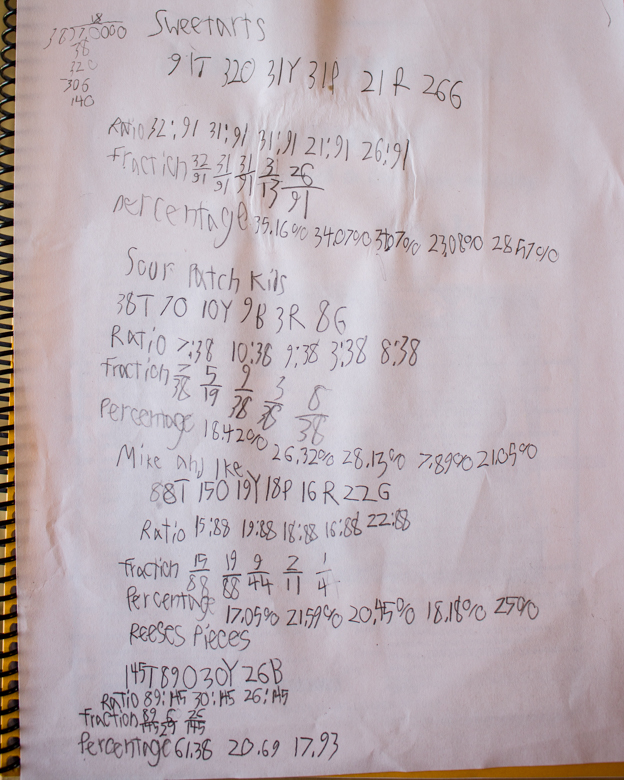 18
38)7.0000
38
320
306
140
Sweetarts
91T 32O 31Y 31P 21R 26G
Ratio 32:91 31:91 31:91 21:91 26:91
Fraction 32/91 31/91 31/91 3/13 26/91
percentage 35.16% 34.07% 34.07% 23.08% 28.57%
Sour Patch Kids
38T 7O 10Y 9B 3R 8G
Ratio 7:38 10:38 9:38 3:38 8:38
Fraction 7/38 5/19 9/38 3/38 8/38
Percentage 18.42% 26.32% 28.13% 7.89% 21.05%
Mike and Ike
88T 15O 19Y 18P 16R 22G
Ratio 15:88 19:88 18:88 16:88 22:88
Fraction 15/88 19/88 9/44 2/11 1/4
Percentage 17.05% 21.59% 20.45% 18.18% 25%
Reeses Pieces
145T 89O 30Y 26B
Ratio 89:145 30:145 26:145
Fraction 89/145 6/29 26/145
Percentage 61.38 20.69 17.93